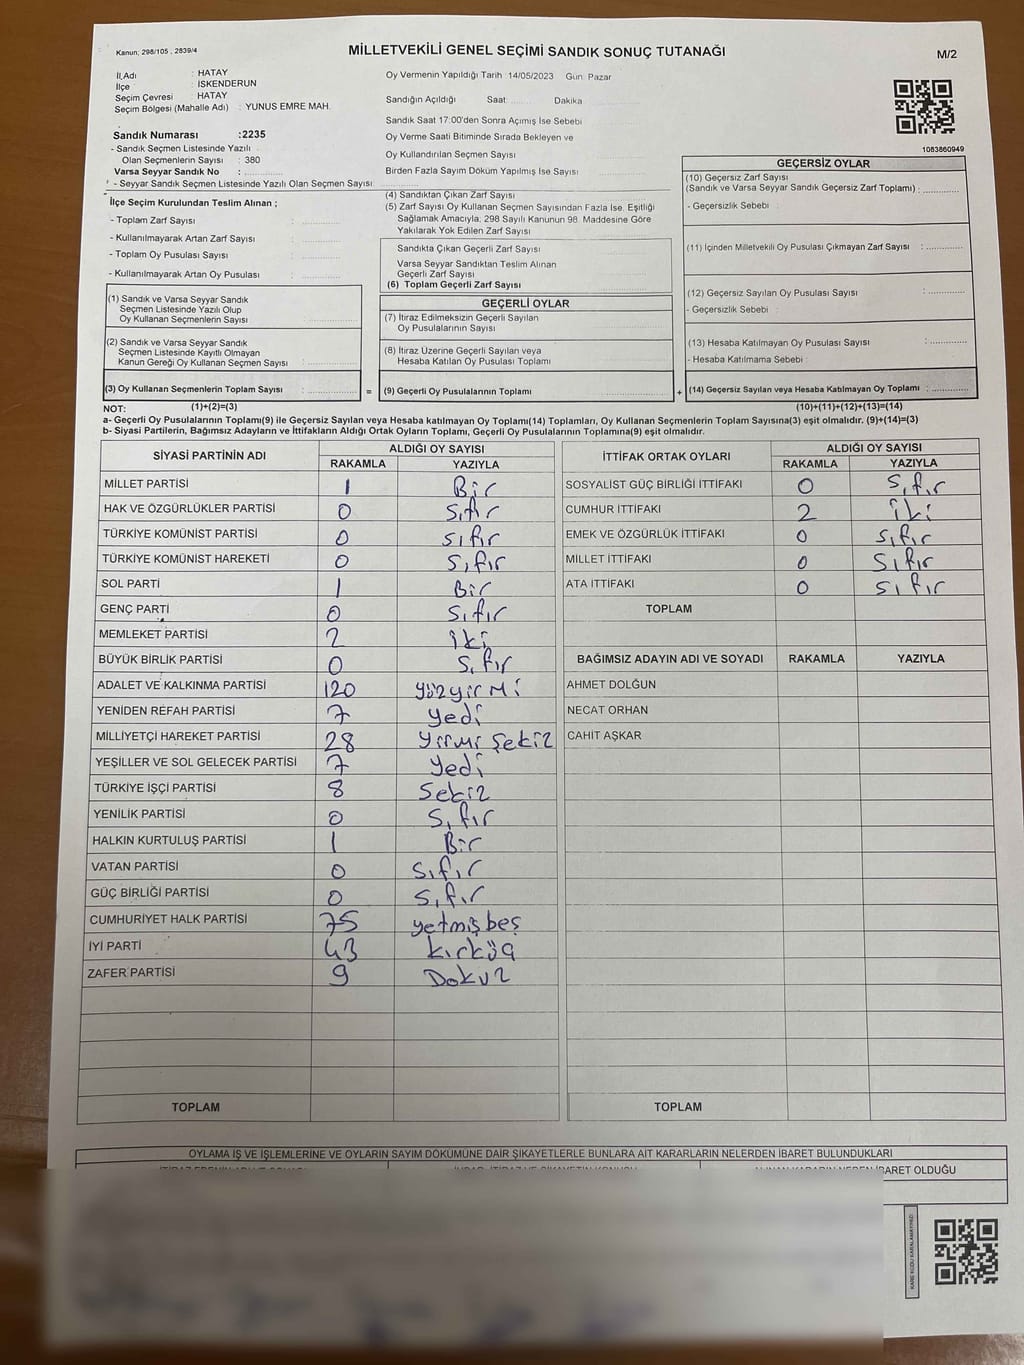 Kanun; 298/105 , 2839/4
MİLLETVEKİLİ GENEL SEÇİMİ SANDIK SONUÇ TUTANAĞI
M/2
İl Adı : HATAY
İlçe : İSKENDERUN
Seçim Çevresi : HATAY
Seçim Bölgesi (Mahalle Adı) : YUNUS EMRE MAH.
Sandık Numarası :2235
- Sandık Seçmen Listesinde Yazılı
Olan Seçmenlerin Sayısı : 380
Varsa Seyyar Sandık No :
- Seyyar Sandık Seçmen Listesinde Yazılı Olan Seçmen Sayısı
Oy Vermenin Yapıldığı Tarih 14/05/2023 Gün: Pazar
Sandığın Açıldığı Saat: Dakika
Sandık Saat 17:00'den Sonra Açımış İse Sebebi
Oy Verme Saati Bitiminde Sırada Bekleyen ve
Oy Kullandırılan Seçmen Sayısı
Birden Fazla Sayım Döküm Yapılmış İse Sayısı
1083860949
İlçe Seçim Kurulundan Teslim Alınan ;
- Toplam Zarf Sayısı :
- Kullanılmayarak Artan Zarf Sayısı :
- Toplam Oy Pusulası Sayısı :
- Kullanılmayarak Artan Oy Pusulası :
(1) Sandık ve Varsa Seyyar Sandık
Seçmen Listesinde Yazılı Olup
Oy Kullanan Seçmenlerin Sayısı
(2) Sandık ve Varsa Seyyar Sandık
Seçmen Listesinde Kayıtlı Olmayan
Kanun Gereği Oy Kullanan Seçmen Sayısı
(3) Oy Kullanan Seçmenlerin Toplam Sayısı :
(1)+(2)=(3)
(4) Sandıktan Çıkan Zarf Sayısı
(5) Zarf Sayısı Oy Kullanan Seçmen Sayısından Fazla İse, Eşitliği
Sağlamak Amacıyla; 298 Sayılı Kanunun 98. Maddesine Göre
Yakılarak Yok Edilen Zarf Sayısı
Sandıkta Çıkan Geçerli Zarf Sayısı
Varsa Seyyar Sandıktan Teslim Alınan
Geçerli Zarf Sayısı
(6) Toplam Geçerli Zarf Sayısı
GEÇERLİ OYLAR
(7) İtiraz Edilmeksizin Geçerli Sayılan
Oy Pusulalarının Sayısı
(8) İtiraz Üzerine Geçerli Sayılan veya
Hesaba Katılan Oy Pusulası Toplamı
= (9) Geçerli Oy Pusulalarının Toplamı
GEÇERSİZ OYLAR
(10) Geçersiz Zarf Sayısı
(Sandık ve Varsa Seyyar Sandık Geçersiz Zarf Toplamı) :
- Geçersizlik Sebebi :
(11) İçinden Milletvekili Oy Pusulası Çıkmayan Zarf Sayısı :
(12) Geçersiz Sayılan Oy Pusulası Sayısı :
- Geçersizlik Sebebi :
(13) Hesaba Katılmayan Oy Pusulası Sayısı :
- Hesaba Katılmama Sebebi :
+ (14) Geçersiz Sayılan veya Hesaba Katılmayan Oy Toplamı :
(10)+(11)+(12)+(13)=(14)
NOT:
a- Geçerli Oy Pusulalarının Toplamı(9) ile Geçersiz Sayılan veya Hesaba Katılmayan Oy Toplamı(14) Toplamları, Oy Kullanan Seçmenlerin Toplam Sayısına(3) eşit olmalıdır. (9)+(14)=(3)
b- Siyasi Partilerin, Bağımsız Adayların ve İttifakların Aldığı Ortak Oyların Toplamı, Geçerli Oy Pusulalarının Toplamına(9) eşit olmalıdır.
SİYASİ PARTİNİN ADI ALDIĞI OY SAYISI
RAKAMLA YAZIYLA
MİLLET PARTİSİ 1 Bir
HAK VE ÖZGÜRLÜKLER PARTİSİ 0 Sıfır
TÜRKİYE KOMÜNİST PARTİSİ 0 Sıfır
TÜRKİYE KOMÜNİST HAREKETİ 0 Sıfır
SOL PARTİ 1 Bir
GENÇ PARTİ 0 Sıfır
MEMLEKET PARTİSİ 2 iki
BÜYÜK BİRLİK PARTİSİ 0 Sıfır
ADALET VE KALKINMA PARTİSİ 120 yüzyirmi
YENİDEN REFAH PARTİSİ 7 yedi
MİLLİYETÇİ HAREKET PARTİSİ 28 yirmi Sekiz
YEŞİLLER VE SOL GELECEK PARTİSİ 7 yedi
TÜRKİYE İŞÇİ PARTİSİ 8 Sekiz
YENİLİK PARTİSİ 0 Sıfır
HALKIN KURTULUŞ PARTİSİ 1 Bir
VATAN PARTİSİ 0 Sıfır
GÜÇ BİRLİĞİ PARTİSİ 0 Sıfır
CUMHURİYET HALK PARTİSİ 75 yetmişbeş
İYİ PARTİ 43 kırküç
ZAFER PARTİSİ 9 Dokuz
TOPLAM
İTTİFAK ORTAK OYLARI ALDIĞI OY SAYISI
RAKAMLA YAZIYLA
SOSYALİST GÜÇ BİRLİĞİ İTTİFAKI 0 Sıfır
CUMHUR İTTİFAKI 2 iki
EMEK VE ÖZGÜRLÜK İTTİFAKI 0 Sıfır
MİLLET İTTİFAKI 0 Sıfır
ATA İTTİFAKI 0 Sıfır
TOPLAM
BAĞIMSIZ ADAYIN ADI VE SOYADI RAKAMLA YAZIYLA
AHMET DOLĞUN
NECAT ORHAN
CAHİT AŞKAR
TOPLAM
OYLAMA İŞ VE İŞLEMLERİNE VE OYLARIN SAYIM DÖKÜMÜNE DAİR ŞİKAYETLERLE BUNLARA AİT KARARLARIN NELERDEN İBARET BULUNDUKLARI
İBARET OLDUĞU